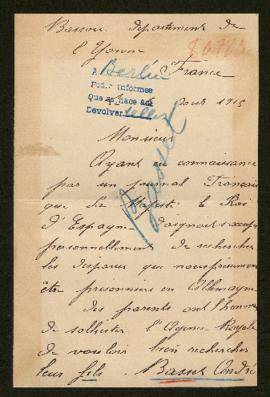 Bassou. Département de
l'Yonne
France
A Berlin
Pedir informes
Que se hace acá
Devolver
Août 1915
Monsieur
Ayant eu connaissance
par un journal Français
que Sa Majesté le Roi
d'Espagne daignait s'occuper
personnellement de rechercher
les disparus que nous présumons
être prisonniers en Allemagne
des parents ont l'honneur
de solliciter l'Agence Royale
de vouloir bien rechercher
leur fils. Basset André